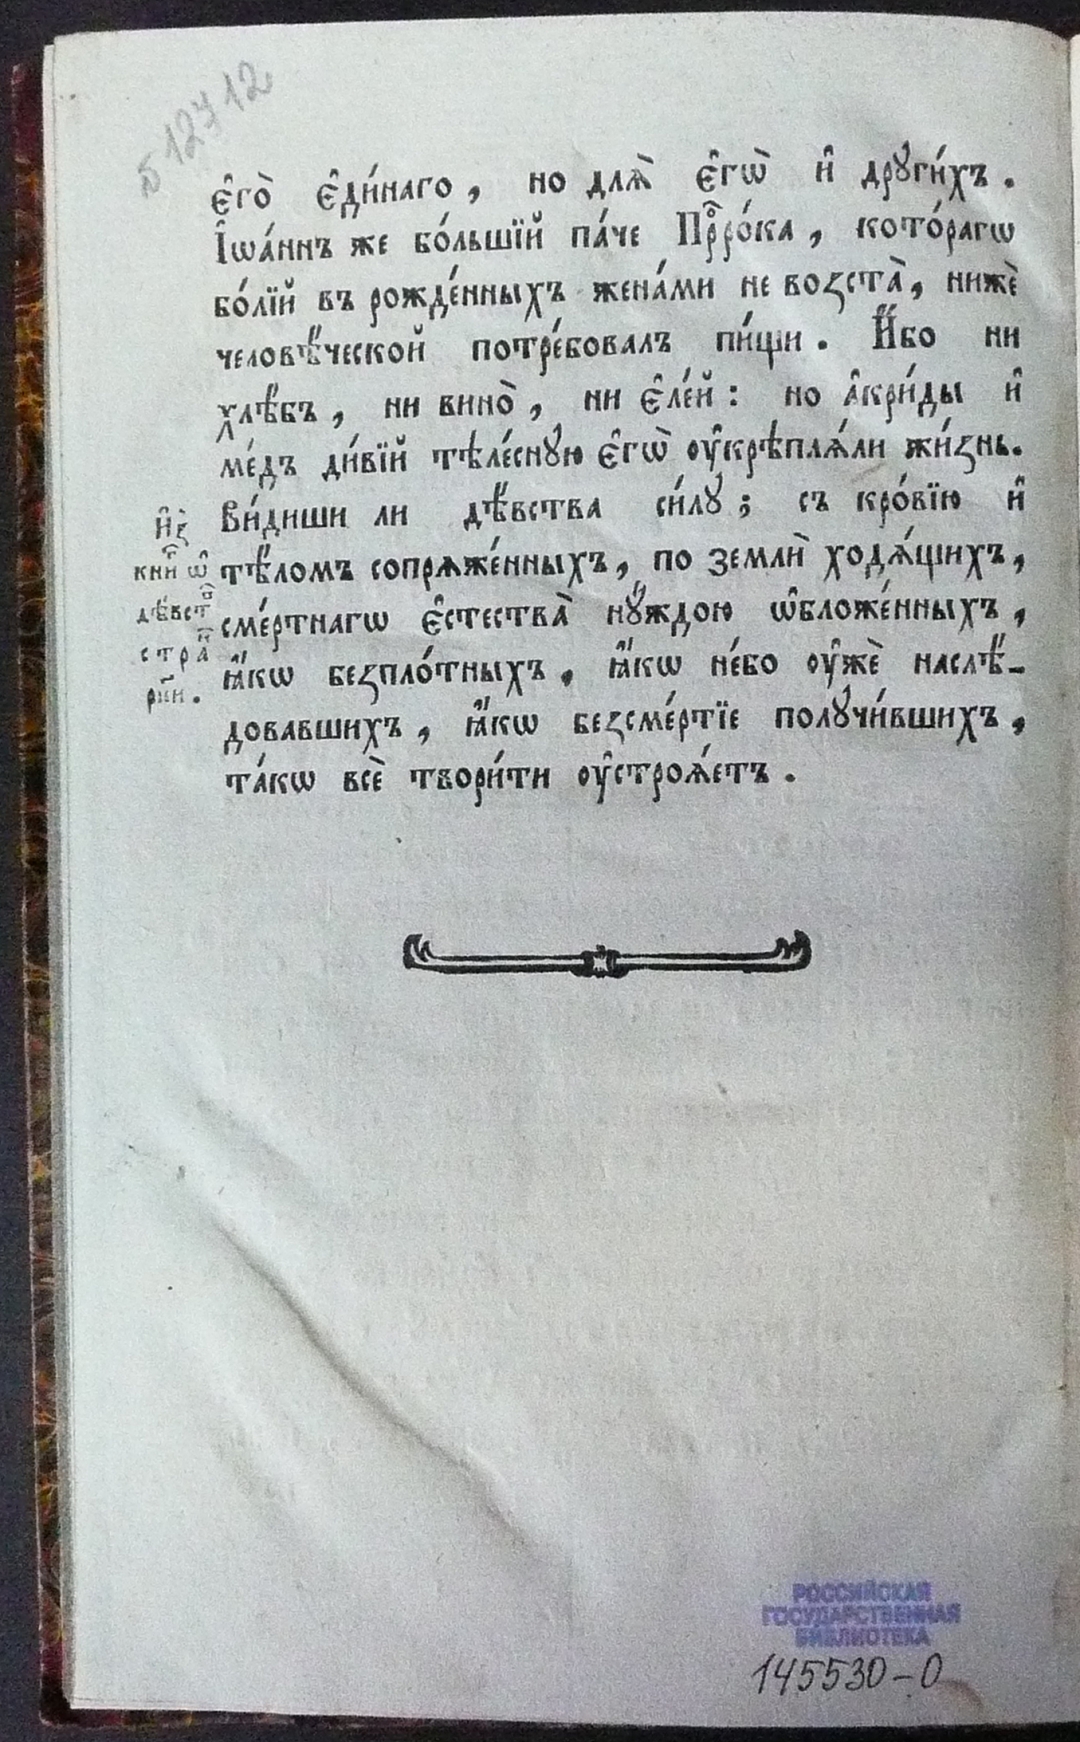 Б 12712
є҆го̀ є҆ди́наго, но для̀ є҆гѡ̀ и҆ дрꙋги́хъ.
І҆ѡа́ннъ же бо́льшїй па́че Прⷪ҇ро́ка, кото́рагѡ
бо́лїй въ рожде́нныхъ жена́ми не возста̀, нижѐ
человѣ́ческой потре́бовалъ пи́щи. И҆́бо ни
хлѣ́бъ, ни вино̀, ни є҆ле́й: но а҆кри́ды и҆
ме́дъ ди́вїй тѣле́снꙋю є҆гѡ̀ ᲂу҆крѣплѧ́ли жи́знь.
Ви́диши ли дѣ́вства си́лꙋ; съ кро́вїю и҆
тѣ́ломъ сопрѧже́нныхъ, по землѝ ходѧ́щихъ,
сме́ртнагѡ є҆стества̀ нꙋ́ждою ѡ҆бложе́нныхъ,
ꙗ҆́кѡ безпло́тныхъ, ꙗ҆́кѡ не́бо ᲂу҆жѐ наслѣ́-
довавшихъ, ꙗ҆́кѡ безсме́ртїе полꙋчи́вшихъ,
та́кѡ всѐ твори́ти ᲂу҆строѧ́етъ.
и҆з̾
кнⷢ҇и ѡ҆
дѣ́вст
стра
рⷯн҃і.
РОССИЙСКАЯ
ГОСУДАРСТВЕННАЯ
БИБЛИОТЕКА
145530-0